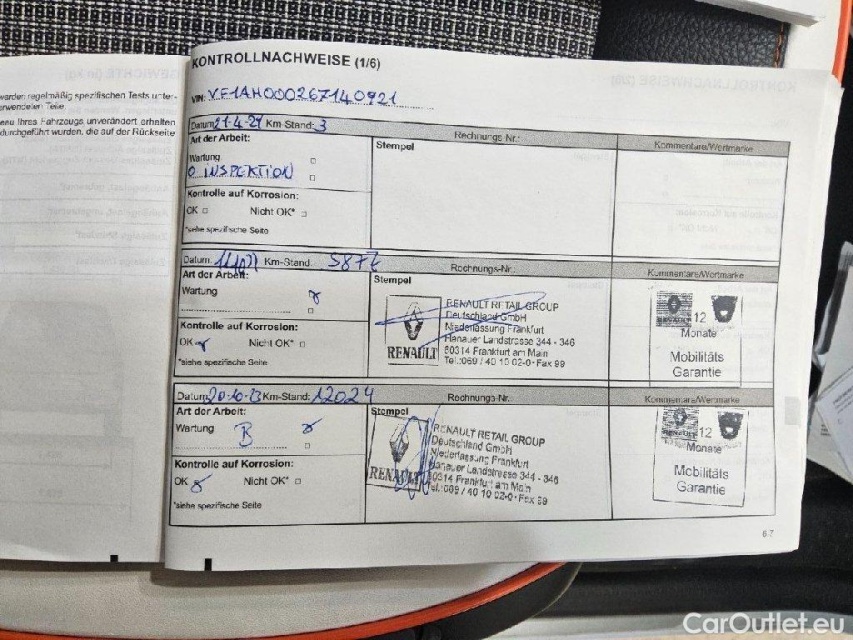 warden regelmäßig spezifischen Tests unter-
erwendeten Teile
enu Ihres Fahrzeugs unverändert erhalten
durchgeführt wurden, die auf der Rückseite
KONTROLLNACHWEISE (1/6)
VIN: VF1AH000267140921
Datum: 21-4-21 Km-Stand: 3 Rechnungs-Nr.: Kommentare/Wertmarke
Art der Arbeit: Stempel
Wartung
O INSPEKTION
Kontrolle auf Korrosion:
OK Nicht OK*
*siehe spezifische Seite
Datum: Km-Stand: 5877 Rechnungs-Nr.: Kommentare/Wertmarke
Art der Arbeit: Stempel
Wartung
Kontrolle auf Korrosion:
OK Nicht OK*
*siehe spezifische Seite
RENAULT
RENAULT RETAIL GROUP
Deutschland GmbH
Niederlassung Frankfurt
Hanauer Landstrasse 344 - 346
60314 Frankfurt am Main
Tel.:069 / 40 10 02-0 · Fax 99
RENAULT 12
Monate
Mobilitäts
Garantie
Datum: 20-10-23 Km-Stand: 12024 Rechnungs-Nr. Kommentare/Wertmarke
Art der Arbeit: Stempel
Wartung B
Kontrolle auf Korrosion:
OK Nicht OK*
*siehe spezifische Seite
RENAULT
RENAULT RETAIL GROUP
Deutschland GmbH
Niederlassung Frankfurt
Hanauer Landstrasse 344 - 346
60314 Frankfurt am Main
Tel.:069 / 40 10 02-0 · Fax 99
12
Monate
Mobilitäts
Garantie
6.7
CarOutlet.eu